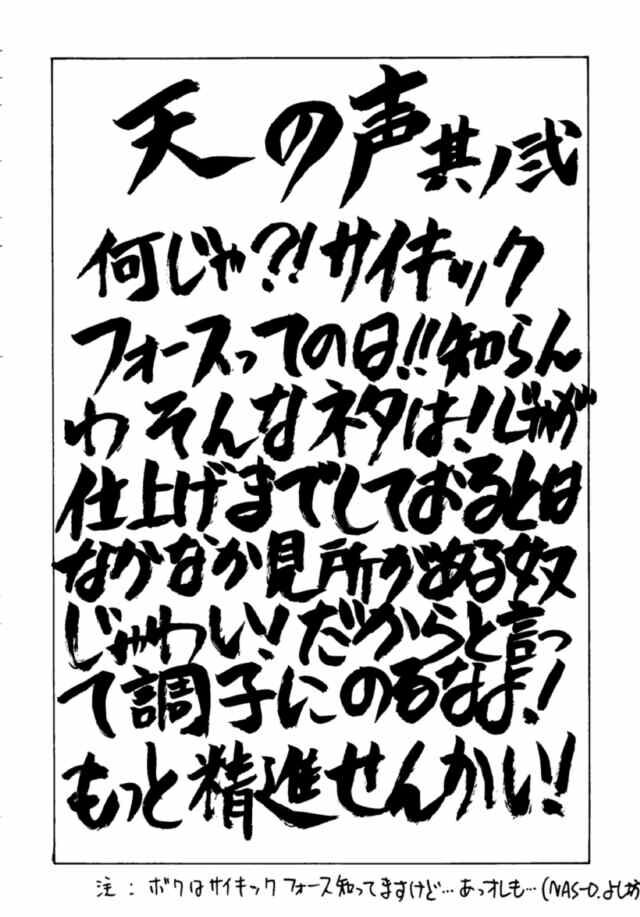 天の声其ノ弐
何じゃ?!サイキック
フォースっての日!!知らん
わそんなネタは!じゃが
仕上げまでしておるとは
なかなか見所がある奴
じゃわい!だからと言っ
て調子にのるなよ!
もっと精進せんかい!
注:ボクはサイキックフォース知ってますけど…あっオレも…(NAS-O.よしか